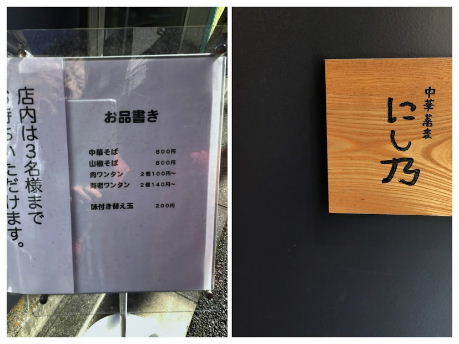 店内は3名様まで
お待ちいただけます。
お品書き
中華そば 800円
山椒そば 800円
肉ワンタン 2個100円〜
海老ワンタン 2個140円〜
味付き替え玉 200円
中華蕎麦
にし乃